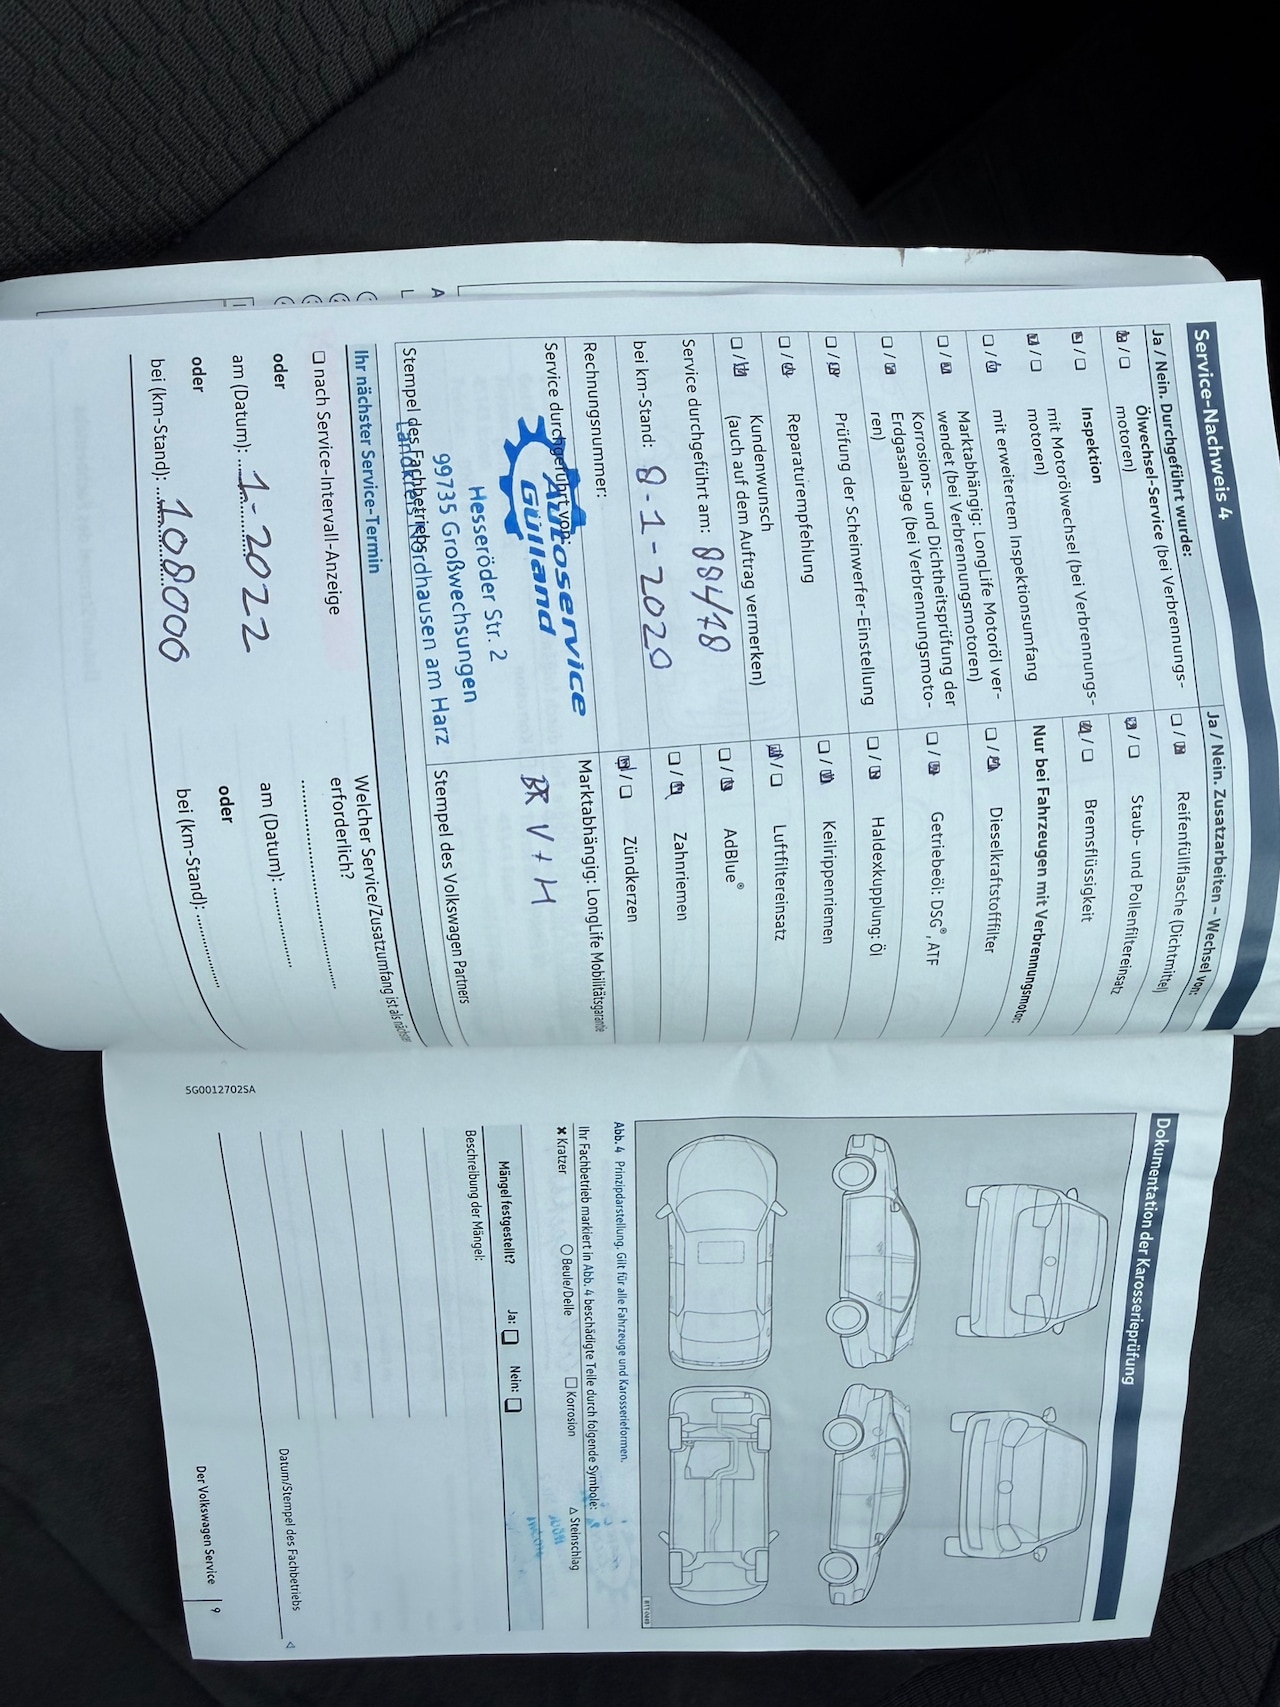 Service-Nachweis 4
Ja / Nein. Durchgeführt wurde:
☒ / ☐ Ölwechsel-Service (bei Verbrennungs-
motoren)
Inspektion
☒ / ☐ mit Motorölwechsel (bei Verbrennungs-
motoren)
☐ / ☒ mit erweitertem Inspektionsumfang
☐ / ☒ Marktabhängig: LongLife Motoröl ver-
wendet (bei Verbrennungsmotoren)
☐ / ☒ Korrosions- und Dichtheitsprüfung der
Erdgasanlage (bei Verbrennungsmoto-
ren)
☐ / ☒ Prüfung der Scheinwerfer-Einstellung
☐ / ☒ Reparaturempfehlung
☐ / ☒ Kundenwunsch
(auch auf dem Auftrag vermerken)
Service durchgeführt am: 88478
bei km-Stand: 8-1-2020
Rechnungsnummer:
Service durchgeführt von:
Autoservice
Gülland
Hesseröder Str. 2
99735 Großwechsungen
Landkreis Nordhausen am Harz
Stempel des Fachbetriebs
Ja / Nein. Zusatzarbeiten – Wechsel von:
☐ / ☒ Reifenfüllflasche (Dichtmittel)
☒ / ☐ Staub- und Pollenfiltereinsatz
☒ / ☐ Bremsflüssigkeit
Nur bei Fahrzeugen mit Verbrennungsmotor:
☐ / ☒ Dieselkraftstofffilter
☐ / ☒ Getriebeöl: DSG®, ATF
☐ / ☒ Haldexkupplung: Öl
☐ / ☒ Keilrippenriemen
☒ / ☐ Luftfiltereinsatz
☐ / ☒ AdBlue®
☐ / ☒ Zahnriemen
☒ / ☐ Zündkerzen
Marktabhängig: LongLife Mobilitätsgarantie
BR V+H
Stempel des Volkswagen Partners
Ihr nächster Service-Termin
☐ nach Service-Intervall-Anzeige
oder
am (Datum): 1-2022
oder
bei (km-Stand): 108000
Welcher Service/Zusatzumfang ist als nächster
erforderlich?
am (Datum):
oder
bei (km-Stand):
5G0012702SA
Dokumentation der Karosserieprüfung
Abb. 4 Prinzipdarstellung. Gilt für alle Fahrzeuge und Karosserieformen.
Ihr Fachbetrieb markiert in Abb. 4 beschädigte Teile durch folgende Symbole:
✖ Kratzer ○ Beule/Delle □ Korrosion △ Steinschlag
Mängel festgestellt? Ja: ☐ Nein: ☐
Beschreibung der Mängel:
Datum/Stempel des Fachbetriebs
Der Volkswagen Service 9